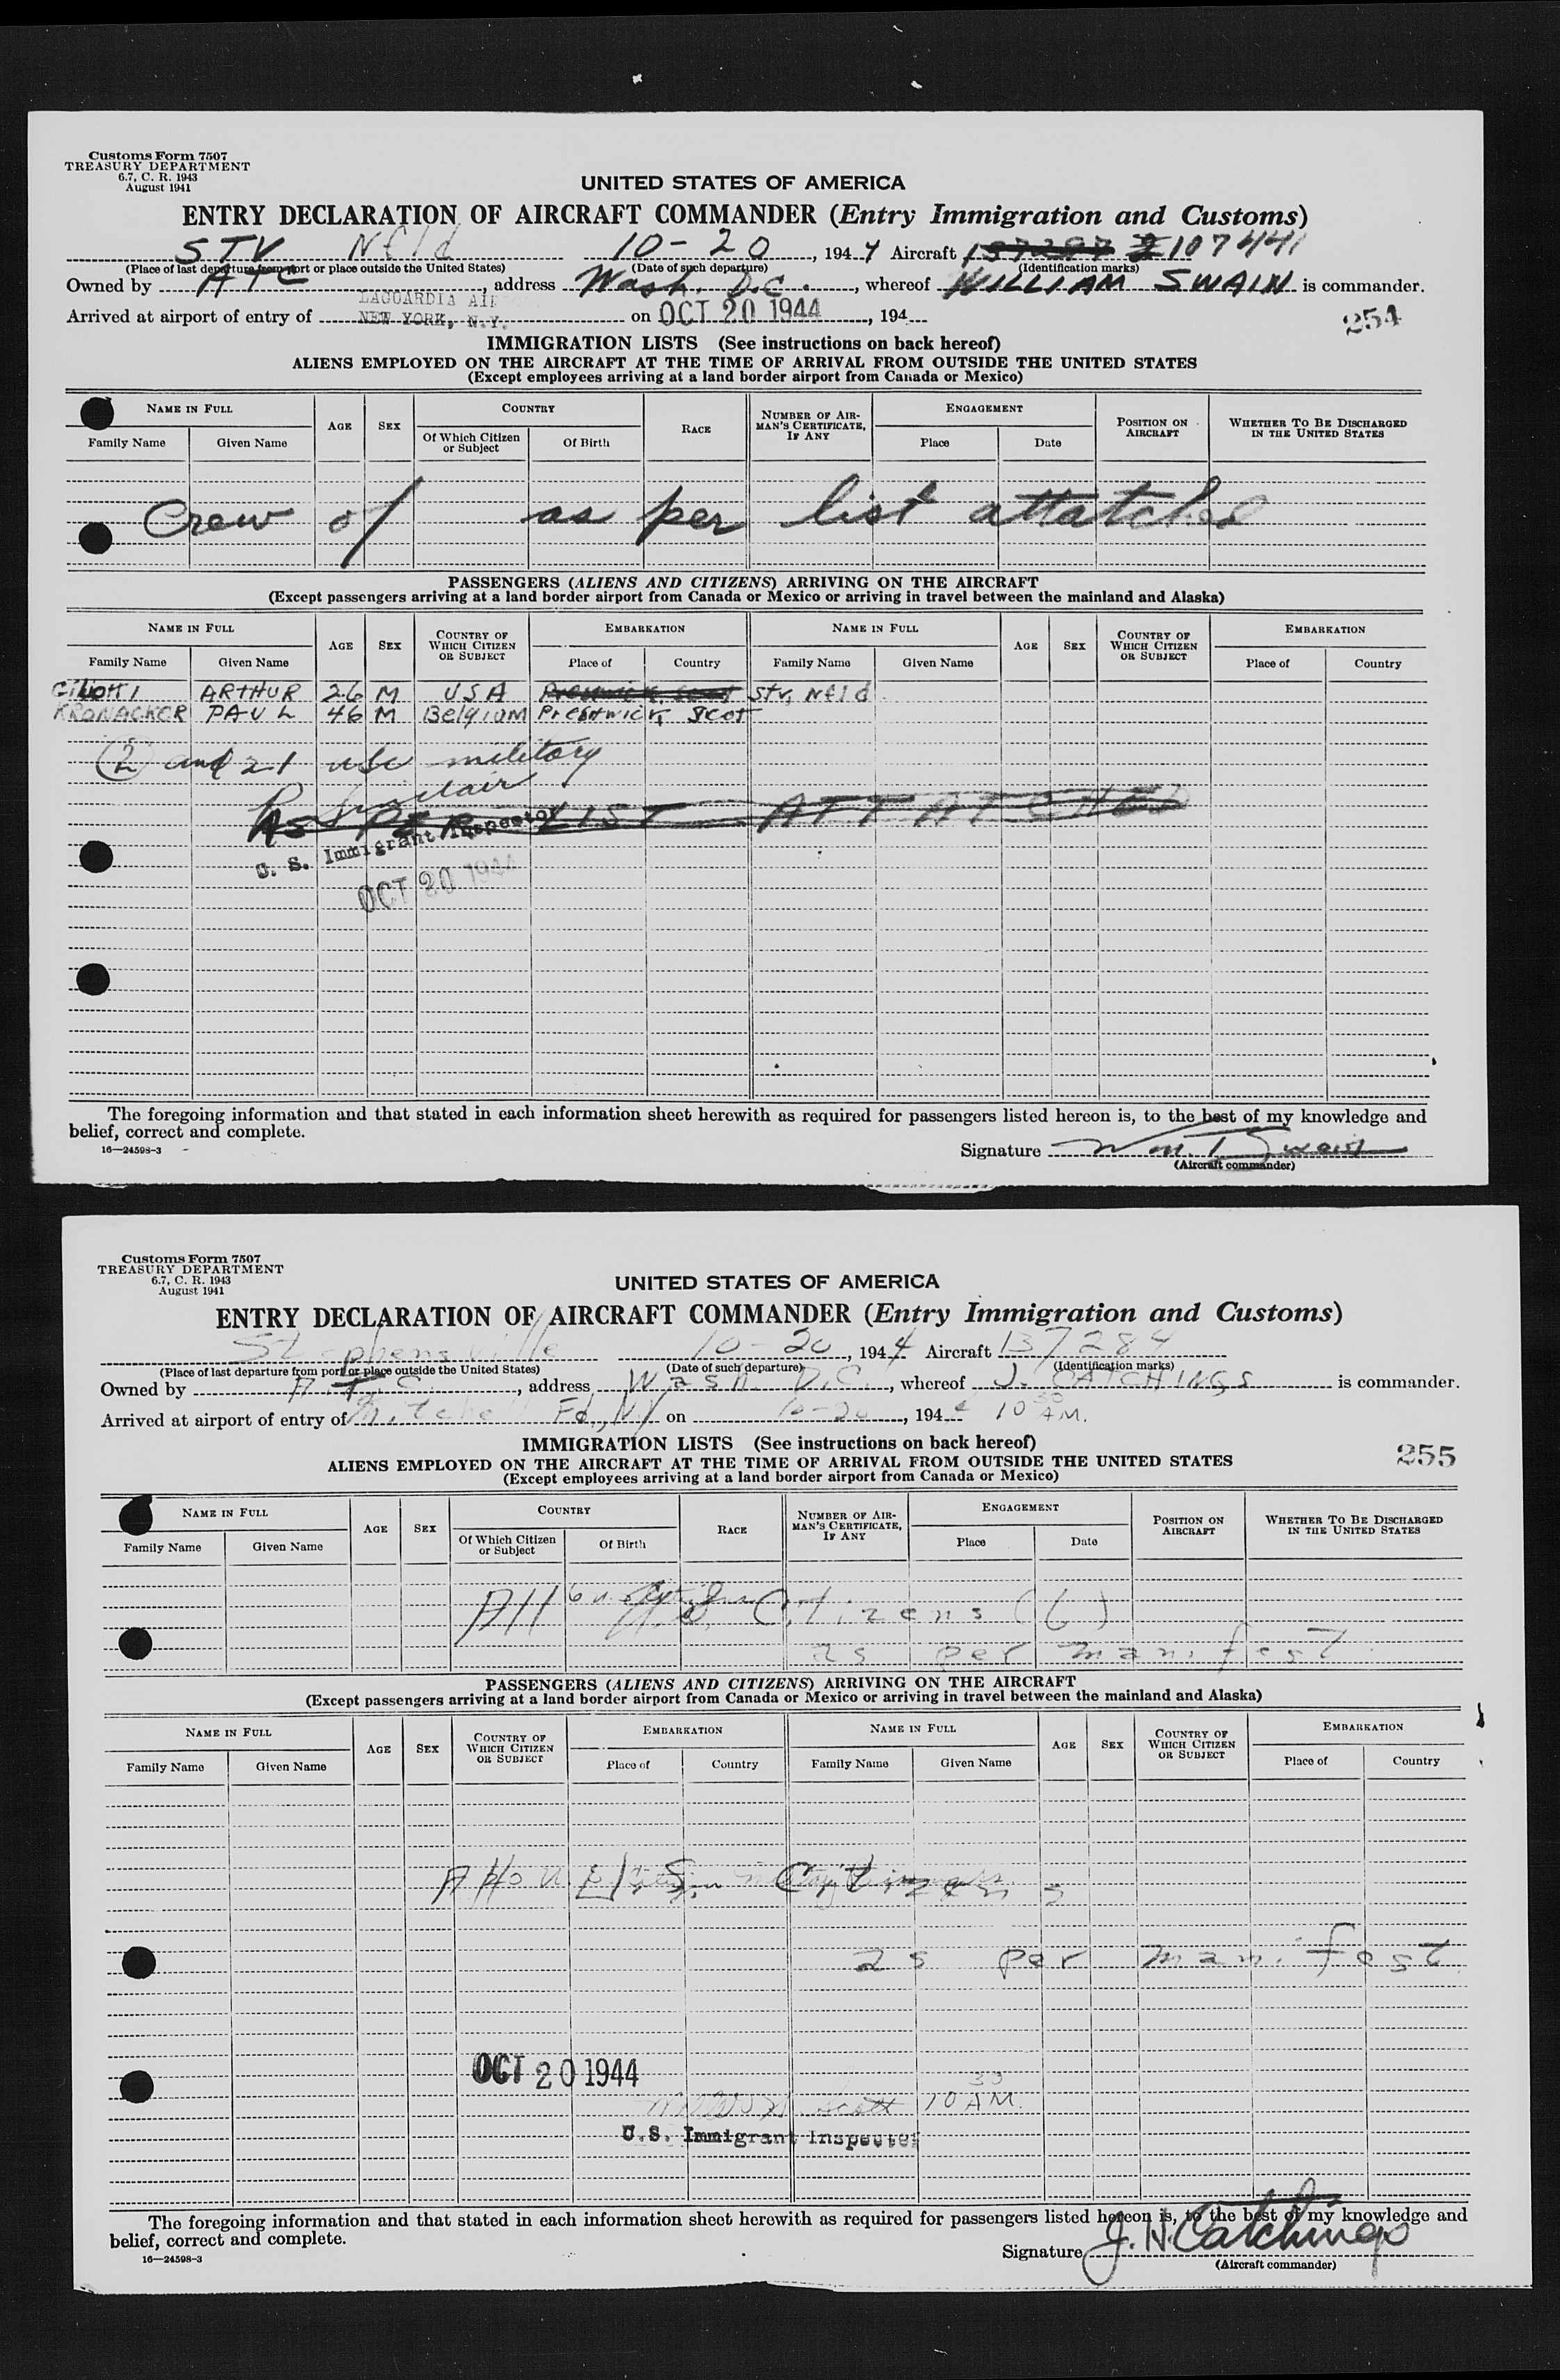 Customs Form 7507
TREASURY DEPARTMENT
6.7, C. R. 1943
August 1941
UNITED STATES OF AMERICA
ENTRY DECLARATION OF AIRCRAFT COMMANDER (Entry Immigration and Customs)
STV Nfld 10-20, 1944 Aircraft 107441
(Place of last departure from port or place outside the United States) (Date of such departure) (Identification marks)
Owned by ATC, address Wash. D.C., whereof WILLIAM SWAIN is commander.
LAGUARDIA AI
Arrived at airport of entry of NEW YORK, N.Y. on OCT 20 1944, 194
254
IMMIGRATION LISTS (See instructions on back hereof)
ALIENS EMPLOYED ON THE AIRCRAFT AT THE TIME OF ARRIVAL FROM OUTSIDE THE UNITED STATES
(Except employees arriving at a land border airport from Canada or Mexico)
NAME IN FULL AGE SEX COUNTRY RACE NUMBER OF AIRMAN'S CERTIFICATE, IF ANY ENGAGEMENT POSITION ON AIRCRAFT WHETHER TO BE DISCHARGED IN THE UNITED STATES
Family Name Given Name Of Which Citizen or Subject Of Birth Place Date
Crew of as per list attatched
PASSENGERS (ALIENS AND CITIZENS) ARRIVING ON THE AIRCRAFT
(Except passengers arriving at a land border airport from Canada or Mexico or arriving in travel between the mainland and Alaska)
NAME IN FULL AGE SEX COUNTRY OF WHICH CITIZEN OR SUBJECT EMBARKATION NAME IN FULL AGE SEX COUNTRY OF WHICH CITIZEN OR SUBJECT EMBARKATION
Family Name Given Name Place of Country Family Name Given Name Place of Country
ARTHUR 26 M USA Prestwick, Scot Stv, Nfld
KRONACKER PAUL 46 M Belgium Prestwick, Scot
(2) and 21 usc military
Sinclair
AS PER LIST ATTATCHED
U. S. Immigrant Inspector
OCT 20 1944
The foregoing information and that stated in each information sheet herewith as required for passengers listed hereon is, to the best of my knowledge and
belief, correct and complete.
16—24598-3
Signature Wm. T. Swain
(Aircraft commander)
Customs Form 7507
TREASURY DEPARTMENT
6.7, C. R. 1943
August 1941
UNITED STATES OF AMERICA
ENTRY DECLARATION OF AIRCRAFT COMMANDER (Entry Immigration and Customs)
Stephensville 10-20, 1944 Aircraft 137284
(Place of last departure from port or place outside the United States) (Date of such departure) (Identification marks)
Owned by A.T.C., address Wash. D.C., whereof J. CATCHINGS is commander.
Arrived at airport of entry of Mitchell Fd., N.Y. on 10-20, 1944 10 30 AM.
IMMIGRATION LISTS (See instructions on back hereof)
255
ALIENS EMPLOYED ON THE AIRCRAFT AT THE TIME OF ARRIVAL FROM OUTSIDE THE UNITED STATES
(Except employees arriving at a land border airport from Canada or Mexico)
NAME IN FULL AGE SEX COUNTRY RACE NUMBER OF AIRMAN'S CERTIFICATE, IF ANY ENGAGEMENT POSITION ON AIRCRAFT WHETHER TO BE DISCHARGED IN THE UNITED STATES
Family Name Given Name Of Which Citizen or Subject Of Birth Place Date
All U.S. Citizens (6)
as per manifest
PASSENGERS (ALIENS AND CITIZENS) ARRIVING ON THE AIRCRAFT
(Except passengers arriving at a land border airport from Canada or Mexico or arriving in travel between the mainland and Alaska)
NAME IN FULL AGE SEX COUNTRY OF WHICH CITIZEN OR SUBJECT EMBARKATION NAME IN FULL AGE SEX COUNTRY OF WHICH CITIZEN OR SUBJECT EMBARKATION
Family Name Given Name Place of Country Family Name Given Name Place of Country
All U.S. Citizens
as per manifest
OCT 20 1944
Scott 10 30 AM.
U.S. Immigrant Inspector
The foregoing information and that stated in each information sheet herewith as required for passengers listed hereon is, to the best of my knowledge and
belief, correct and complete.
16—24598-3
Signature J. H. Catchings
(Aircraft commander)